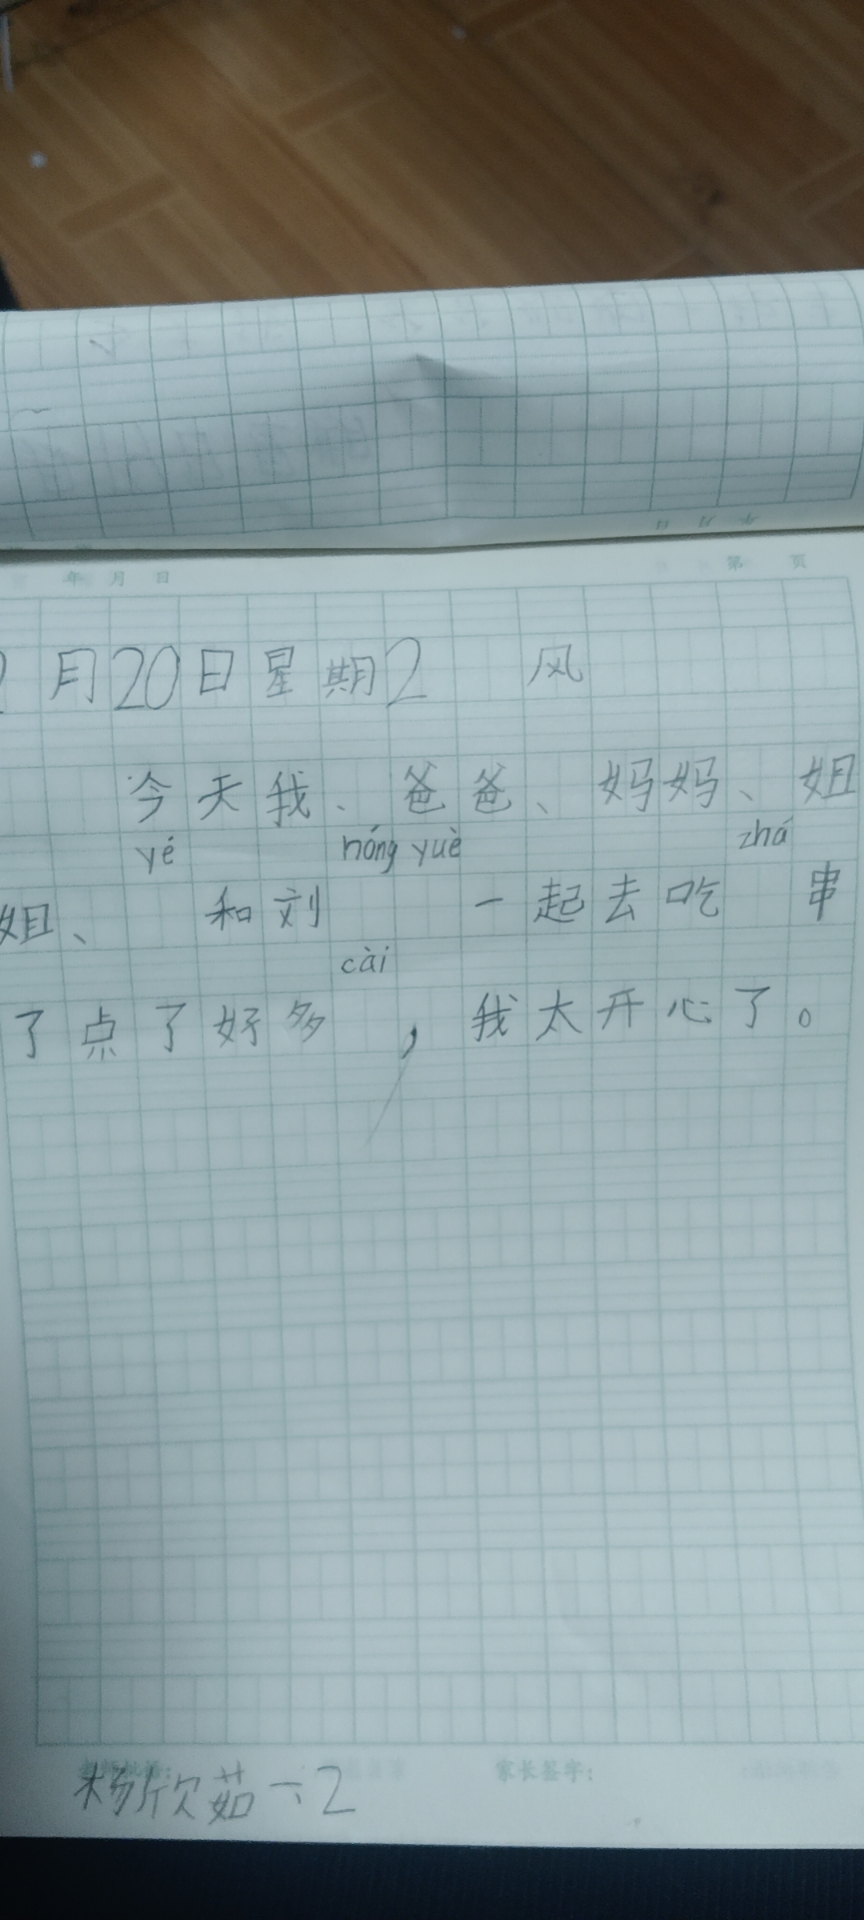 年 月 日 第 页
2月20日星期2 风
今天我、爸爸、妈妈、姐
yé hóng yuè zhá
姐、 和刘 一起去吃 串
cài
了点了好多 ，我太开心了。
家长签字：
杨欣茹一2